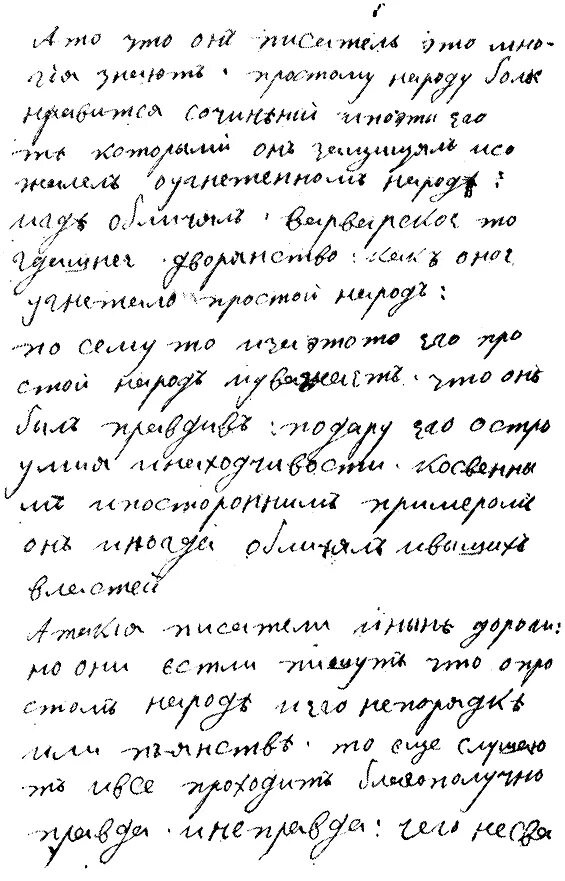 А то что онъ писатель это мно-
гія знаютъ. простому народу болѣ
нравится сочинѣній ипоэты его
тѣ которыми онъ защищялъ исо
жалелъ оугнетенномъ народѣ:
игдѣ обличялъ. варварское то
гдашнее дворянство: какъ оное
угнетало простой народъ:
по сему то изаэтото его про
стой народъ иуважаетъ. что онъ
былъ правдивъ: подару его остро
умия инаходчивости. косвенны
мъ ипостороннимъ примеромъ
онъ иногда обличялъ ивышихъ
властей
Атакія писатели инынѣ дороги:
но они естли пишутъ что опро
стомъ народѣ иего непорядкѣ
или пъянствѣ. то еще слушаю
тъ ивсе проходитъ благополучно
правда. инеправда: чего несва